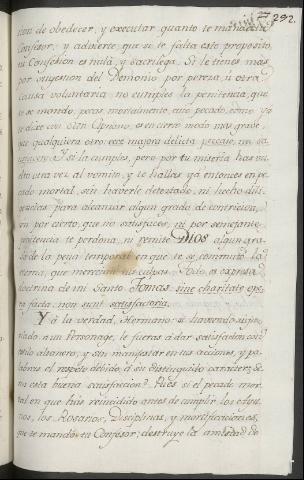 292.
cion de obedecer, y executar quanto te mandare el
Confesor; y advierte, que si te falta este proposito,
tu Confesion es nula, y sacrilega. Si le tienes mas
por sugestion del Demonio por pereza, ù otra
causa voluntaria, no cumples la penitencia, que
te se mandò, pecas mortalmente, cuio pecado, como yá
te dixe con San Cipriano, es en cierto modo mas grave,
que qualquiera otro:
Y si la cumples, pero por tu miseria has vuel
to otra vez al vomito, y te hallas yá entonces en pe
cado mortal, sin haverle detestado, ni hecho dili
gencias para alcanzar algun grado de contricion,
ten por cierto, que no satisfaces, ni por semejante
penitencia te perdona, ni remite DIOS algun gra
do de la pena temporal en que te se commutò la
eterna, que merecian tus culpas. Todo es expresa
doctrina de mi Santo Tomas. sine charitate ope
ra facta, non sunt satisfactoria.
Y á la verdad, Hermano: si haviendo injur
tado á un Personage, le fueras á dar satisfaccion con
estilo
y sin manifestar en tus acciones, y pa
labras el respeto debido, á su distinguido caracter, se
ria esta buena satisfaccion? Pues si el pecado mor
tal en que has reincidido antes de cumplir los ayu
nos, los Rosarios, Disciplinas, y mortificaciones,
que te mandò tu Confesor; destruye la amistad de